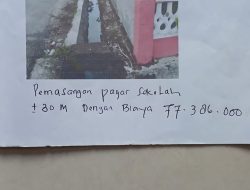 Pemasangan pagar sekolah
± 30 M Dengan Biaya 77.386.000